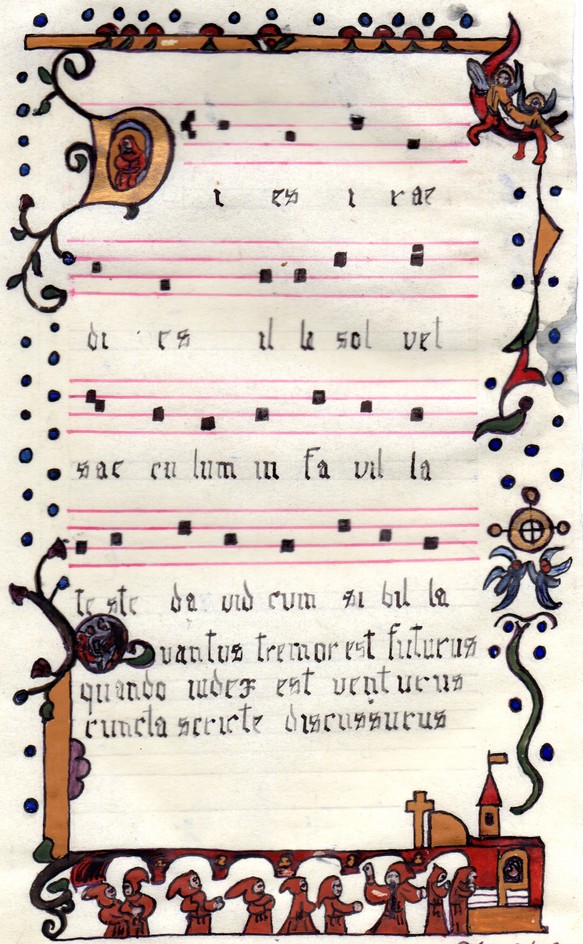 D i es i rae
di es il la sol vet
sae cu lum in fa vil la
te ste da vid cum si bil la
Quantus tremor est futurus
quando iudex est venturus
cuncta stricte discussurus